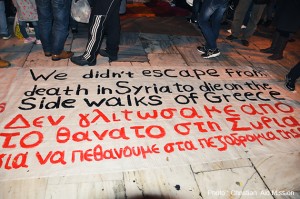 We didn't escape from
death in Syria to die on the
Side walks of Greece
Δεν γλιτώσαμε από
το θάνατο στη Συρία
για να πεθάνουμε στα πεζοδρόμια της